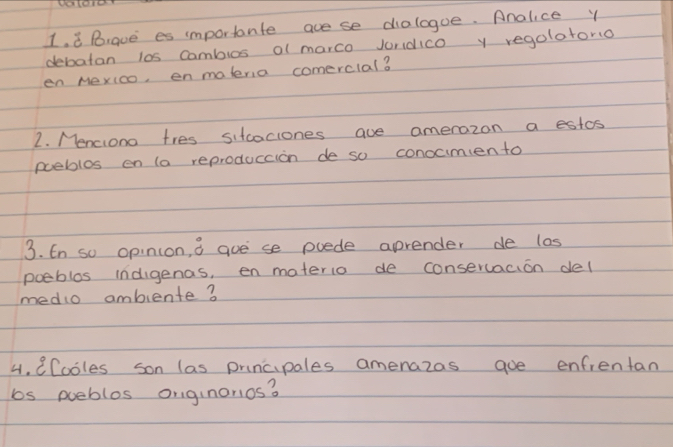 1. ¿ Porqué es importante que se dialogue. Analice y
debatan los cambios al marco Juridico y regulatorio
en Mexico. en materia comercial?
2. Menciona tres situaciones que amenazan a estos
pueblos en la reproducción de su conocimiento
3. En su opinion, ¿ qué se puede aprender de los
pueblos indígenas, en materia de conservación del
medio ambiente?
4. ¿Cuáles son las principales amenazas que enfrentan
los pueblos originarios?